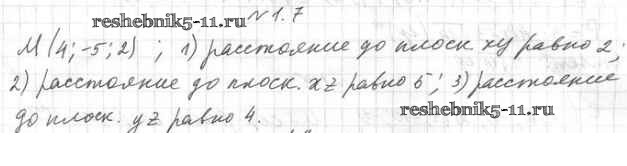 №1.7
reshebnik5-11.ru
М (4; -5; 2) ; 1) расстояние до плоск. xy равно 2;
2) расстояние до плоск. xz равно 5; 3) расстояние
reshebnik5-11.ru
до плоск. yz равно 4.